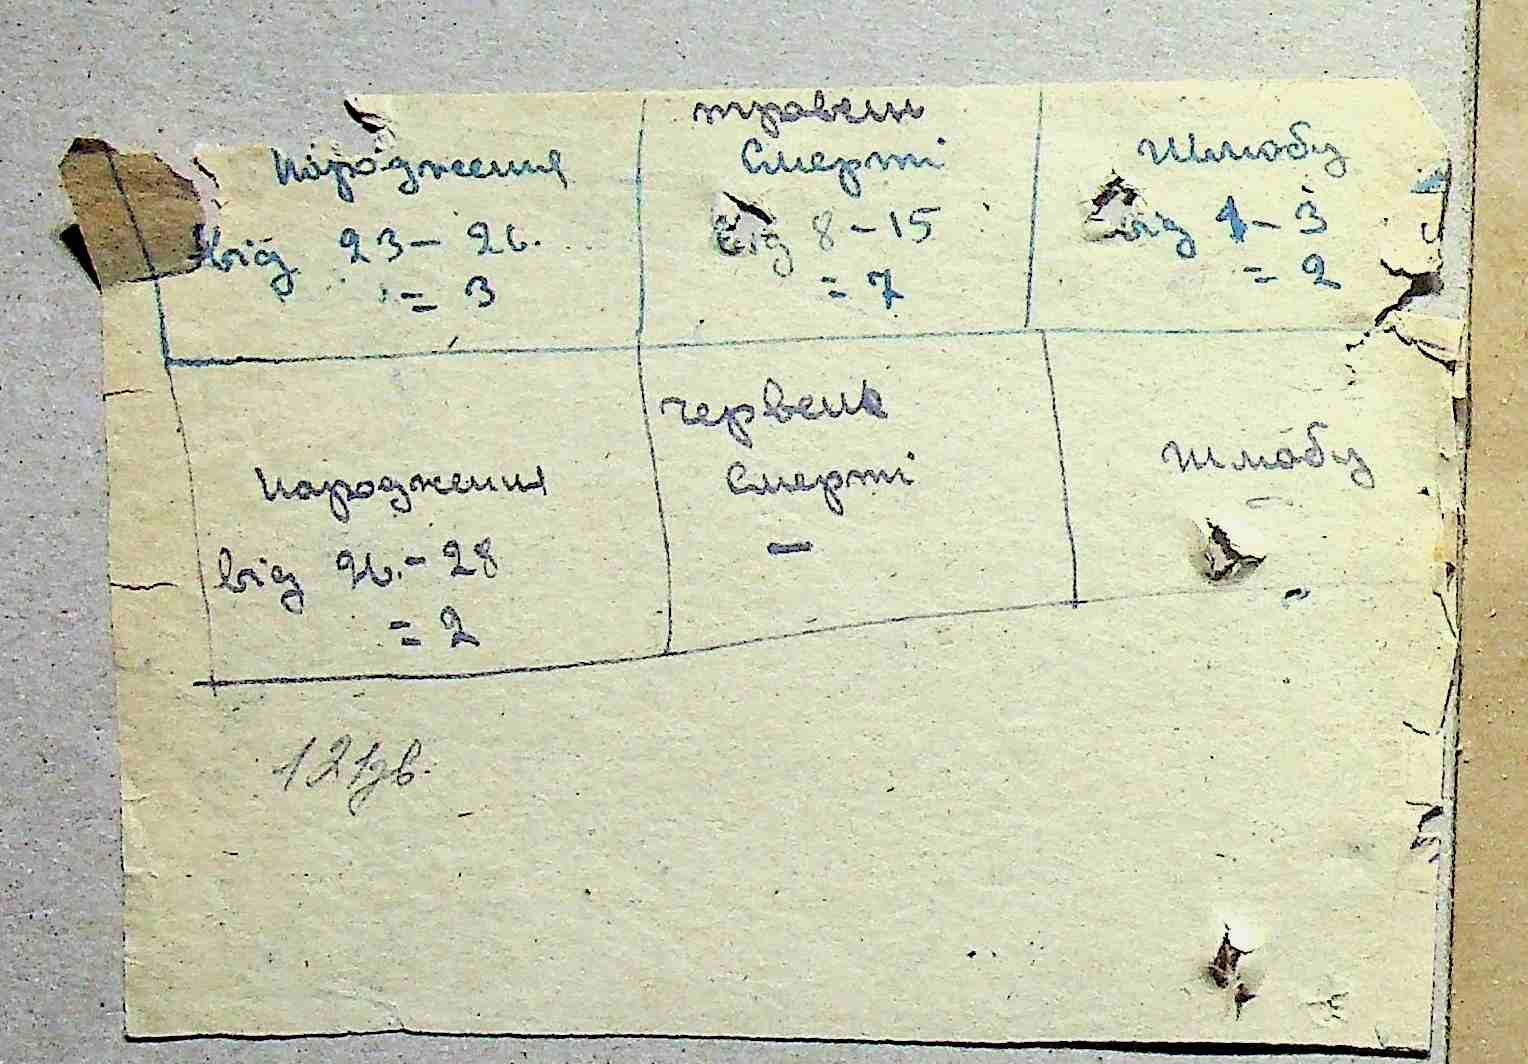 травень
Народження Смерті Шлюбу
від 23-26. від 8-15 від 1-3
= 3 = 7 = 2
червень
Народження Смерті Шлюбу
від 26.-28 - -
= 2